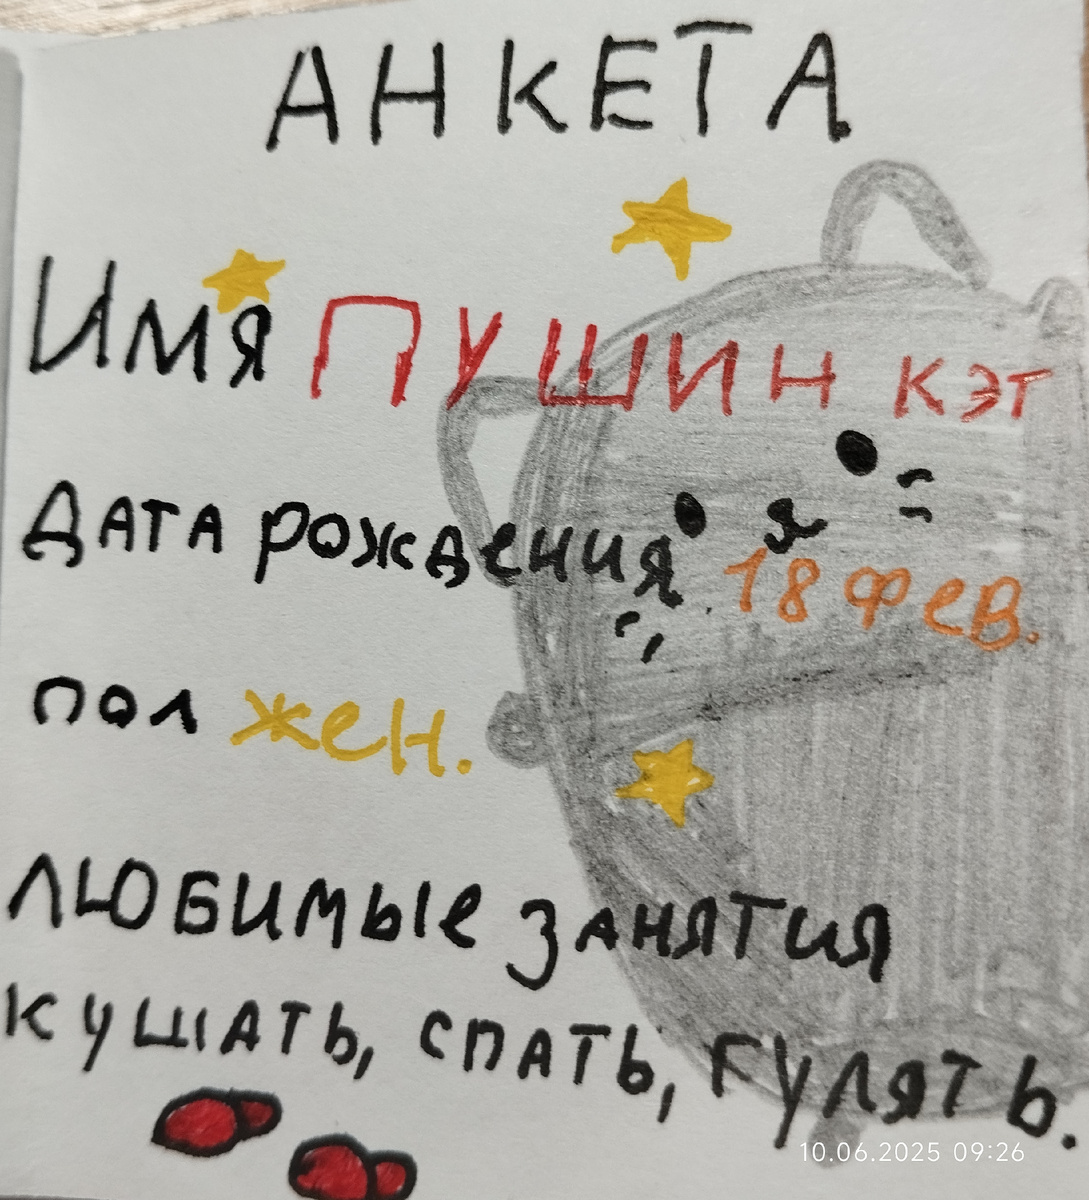 АНКЕТА
Имя ПУШИН КЭТ
ДАТА рождения 18 фев.
пол жен.
любимые занятия
кушать, спать, гулять.
10.06.2025 09:26